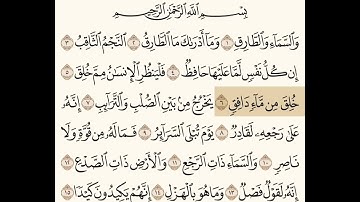 بِسْمِ ٱللَّهِ ٱلرَّحْمَٰنِ ٱلرَّحِيمِ
وَٱلسَّمَآءِ وَٱلطَّارِقِ ١ وَمَآ أَدْرَىٰكَ مَا ٱلطَّارِقُ ٢ ٱلنَّجْمُ ٱلثَّاقِبُ ٣
إِن كُلُّ نَفْسٍ لَّمَّا عَلَيْهَا حَافِظٌ ٤ فَلْيَنظُرِ ٱلْإِنسَٰنُ مِمَّ خُلِقَ ٥
خُلِقَ مِن مَّآءٍ دَافِقٍ ٦ يَخْرُجُ مِنۢ بَيْنِ ٱلصُّلْبِ وَٱلتَّرَآئِبِ ٧ إِنَّهُۥ
عَلَىٰ رَجْعِهِۦ لَقَادِرٌ ٨ يَوْمَ تُبْلَى ٱلسَّرَآئِرُ ٩ فَمَا لَهُۥ مِن قُوَّةٍ وَلَا
نَاصِرٍ ١٠ وَٱلسَّمَآءِ ذَاتِ ٱلرَّجْعِ ١١ وَٱلْأَرْضِ ذَاتِ ٱلصَّدْعِ ١٢
إِنَّهُۥ لَقَوْلٌ فَصْلٌ ١٣ وَمَا هُوَ بِٱلْهَزْلِ ١٤ إِنَّهُمْ يَكِيدُونَ كَيْدًا ١٥